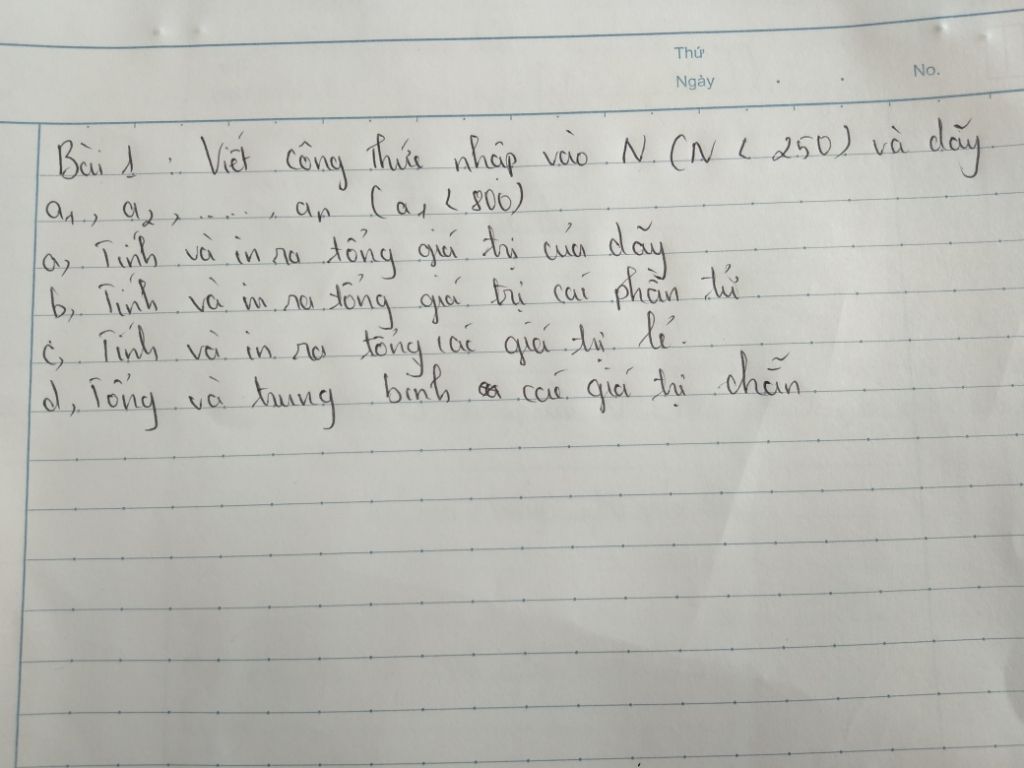 Thứ
Ngày . . No.
Bài 1 : Viết công thức nhập vào N (N < 250) và dãy
a1, a2, ....., an (a1 < 800)
a, Tính và in ra tổng giá trị của dãy
b, Tính và in ra tổng giá trị các phần tử
c, Tính và in ra tổng các giá trị lẻ.
d, Tổng và trung bình các giá trị chẵn